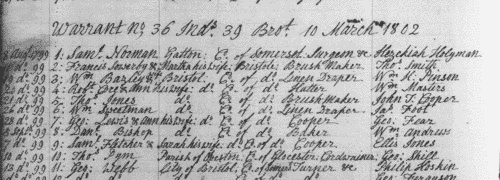 Warrant no. 36 Ind. 39 Bro. 10 March 1802
1: Sam.l Norman Yatton C.o of Somerset Surgeon & Hezekiah Holyman
d.o 99 2: Francis & Martha his wife Bristol Brush Maker Tho.s Smith
d.o 99 3: W.m Bristol C.o of d.o Linen Draper W.m K. Pinson
d.o 99 4: Rob.t & Ann his wife d.o C.o of d.o Hatter W.m Masters
d.o 99 5: Tho.s Jones d.o C.o of d.o Brush Maker John T. Cooper
d.o 99 6: W.m d.o C.o of d.o Linen Draper Jas. Foot
d.o 99 7: Geo: Lewis & Ann his wife d.o C.o of d.o Cooper Geo: Fear
Sept. 99 8: Dan.l Bishop d.o C.o of d.o Baker W.m Andrews
d.o 99 9: Sam.l Fletcher & Sarah his wife d.o C.o of d.o Cooper Ellis Jones
d.o 99 10: Tho.s Pym Parish of C.o of Glocester Cordwainer Geo: Shill
d.o 99 11: Geo: Webb City of Bristol, C.o of Turner &c Philip Hoskin
Ferguson